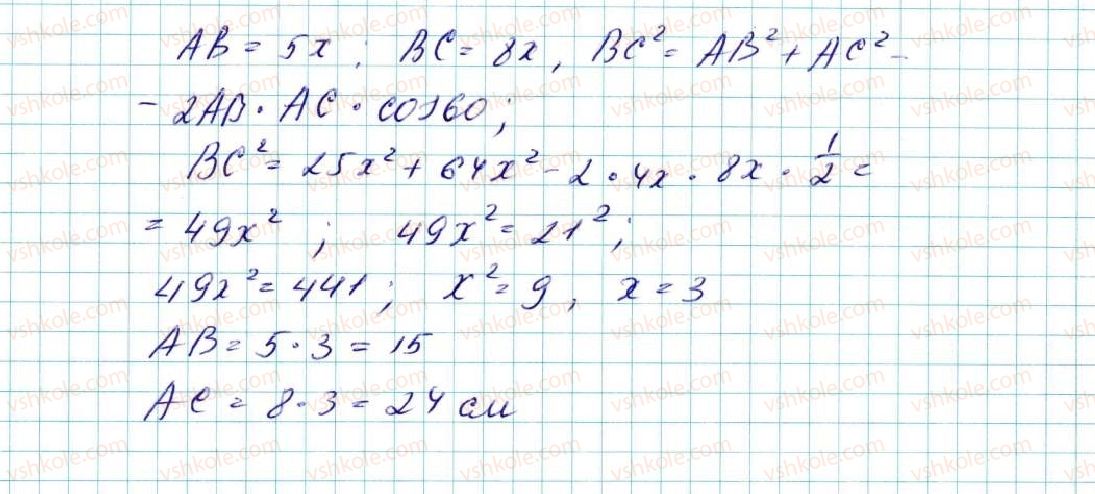 AB = 5x ; BC = 8x , BC² = AB² + AC² -
- 2AB · AC · cos60 ;
BC² = 25x² + 64x² - 2 · 4x · 8x · 1/2 =
= 49x² ; 49x² = 21² ;
49x² = 441 ; x² = 9 , x = 3
AB = 5 · 3 = 15
AC = 8 · 3 = 24 см